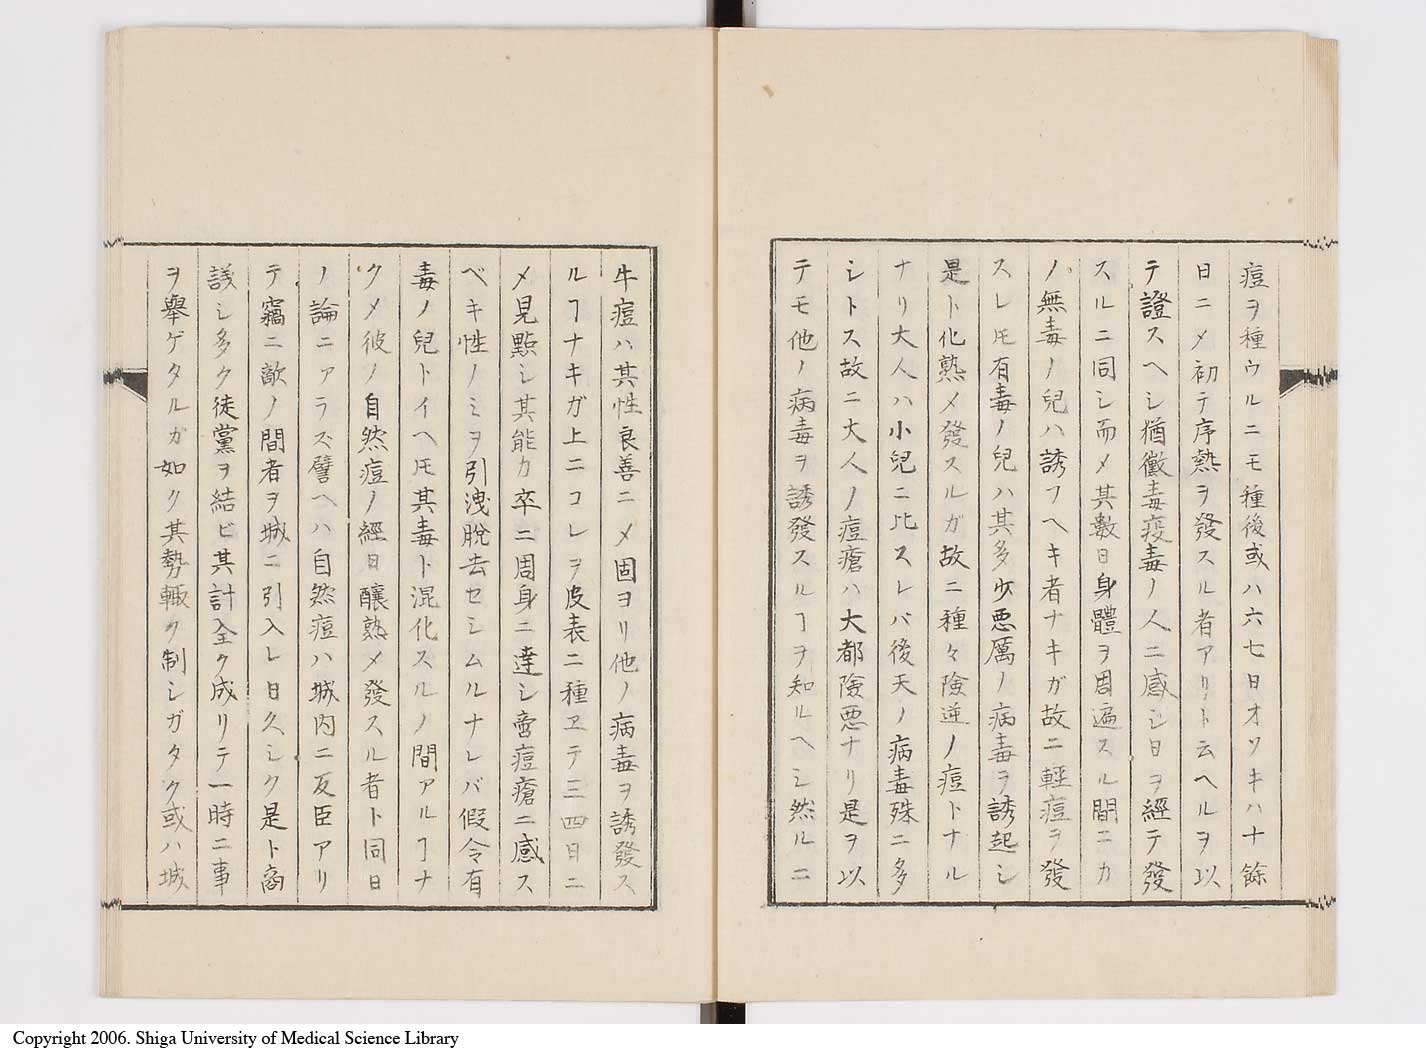 痘ヲ種ウルニモ種後或ハ六七日オソキハ十餘
日ニメ初テ序熱ヲ發スル者アリト云ヘルヲ以
テ證スヘシ猶黴毒疫毒ノ人ニ感シ日ヲ經テ發
スルニ同シ而メ其數日身體ヲ周遍スル間ニカ
ノ無毒ノ兒ハ誘フヘキ者ナキガ故ニ輕痘ヲ發
スレ𪜈有毒ノ兒ハ其多少悪厲ノ病毒ヲ誘起シ
是ト化熟メ發スルガ故ニ種々險逆ノ痘トナル
ナリ大人ハ小兒ニ比スレバ後天ノ病毒殊ニ多
シトス故ニ大人ノ痘瘡ハ大都險悪ナリ是ヲ以
テモ他ノ病毒ヲ誘發スルヿヲ知ルヘシ然ルニ
牛痘ハ其性良善ニメ固ヨリ他ノ病毒ヲ誘發ス
ルヿナキガ上ニコレヲ皮表ニ種ヱテ三四日ニ
メ見點シ其能力卒ニ周身ニ達シ啻痘瘡ニ感ス
ベキ性ノミヲ引洩脫去セシムルナレバ假令有
毒ノ兒トイヘ𪜈其毒ト混化スルノ間アルヿナ
クメ彼ノ自然痘ノ經日釀熟メ發スル者ト同日
ノ論ニアラズ譬ヘハ自然痘ハ城内ニ反臣アリ
テ竊ニ敵ノ間者ヲ城ニ引入レ日久シク是ト商
議シ多ク徒黨ヲ結ビ其計全ク成リテ一時ニ事
ヲ舉ゲタルガ如ク其勢輙ク制シガタク或ハ城
Copyright 2006. Shiga University of Medical Science Library